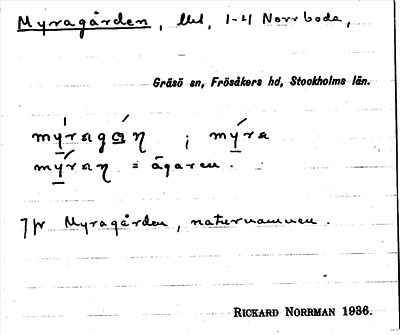 Myragården, 1-4 Norrboda,
Gräsö sn, Frösåkers hd, Stockholms län.
mýragɑ̀ɳ ; mýra
mýraɳ = ägaren.
Jfr Myragården, naturnamnen.
RICKARD NORRMAN 1936.